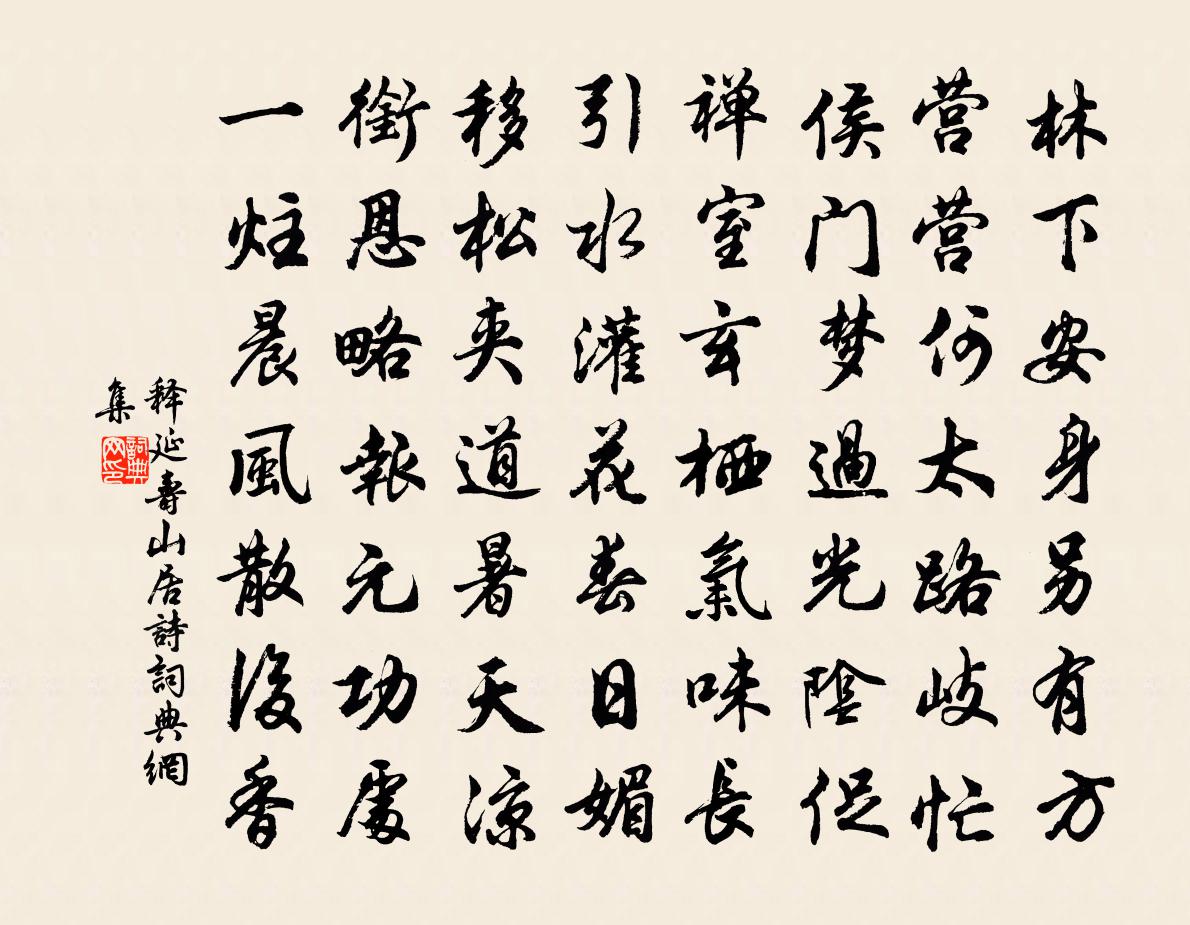 林下安身另有方
营营何太路岐忙
侯门梦过光陰促
禅室玄栖氣味長
引水灌花春日媚
移松夹道暑天凉
衔恩略報元功處
一炷晨風散後香
释延壽山居詩詞典網
集
詞典
网印